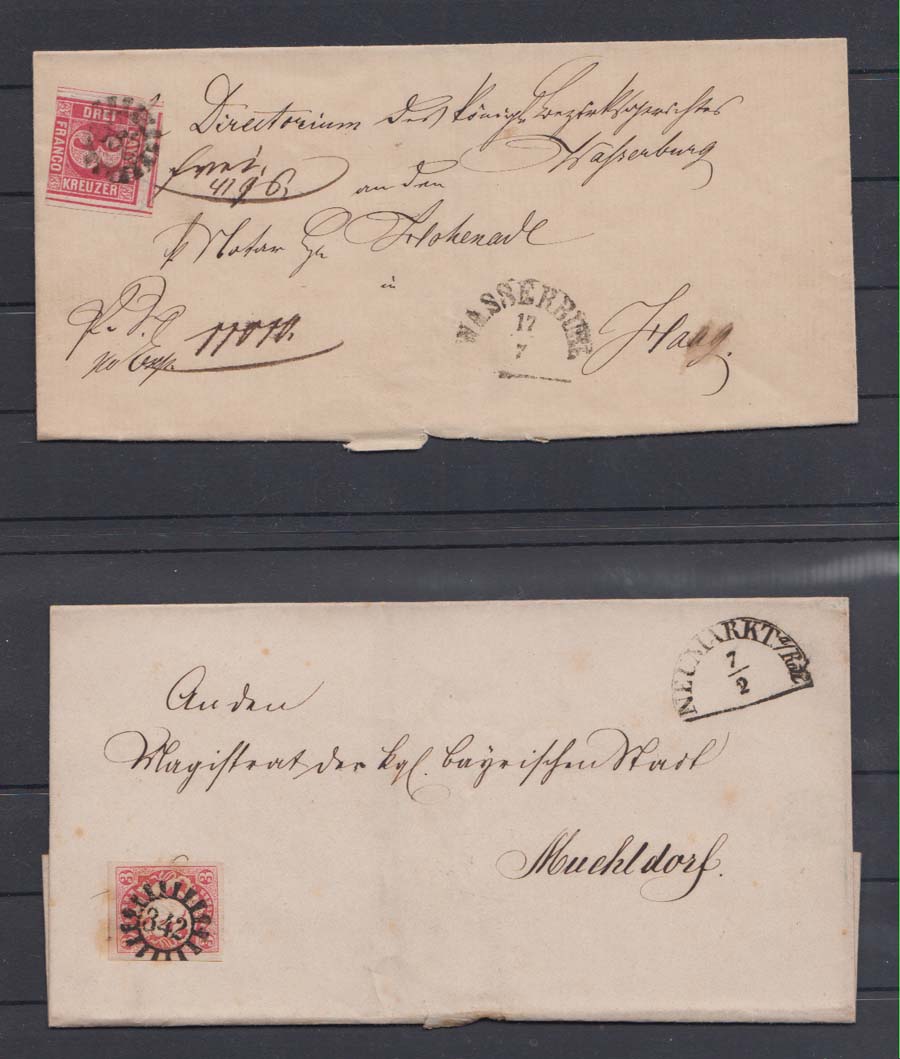 DREI
BAYR.
FRANCO
3
KREUZER
Directorium des königl. Bezirksgerichtes
Wasserburg
frei.
an den
Notar
in
Haag.
WASSERBURG
17
7
NEUMARKT a/Rott
7/2
An den
Magistrat der kgl. bayrischen Stadt
Muehldorf.
3 3
342
3 3